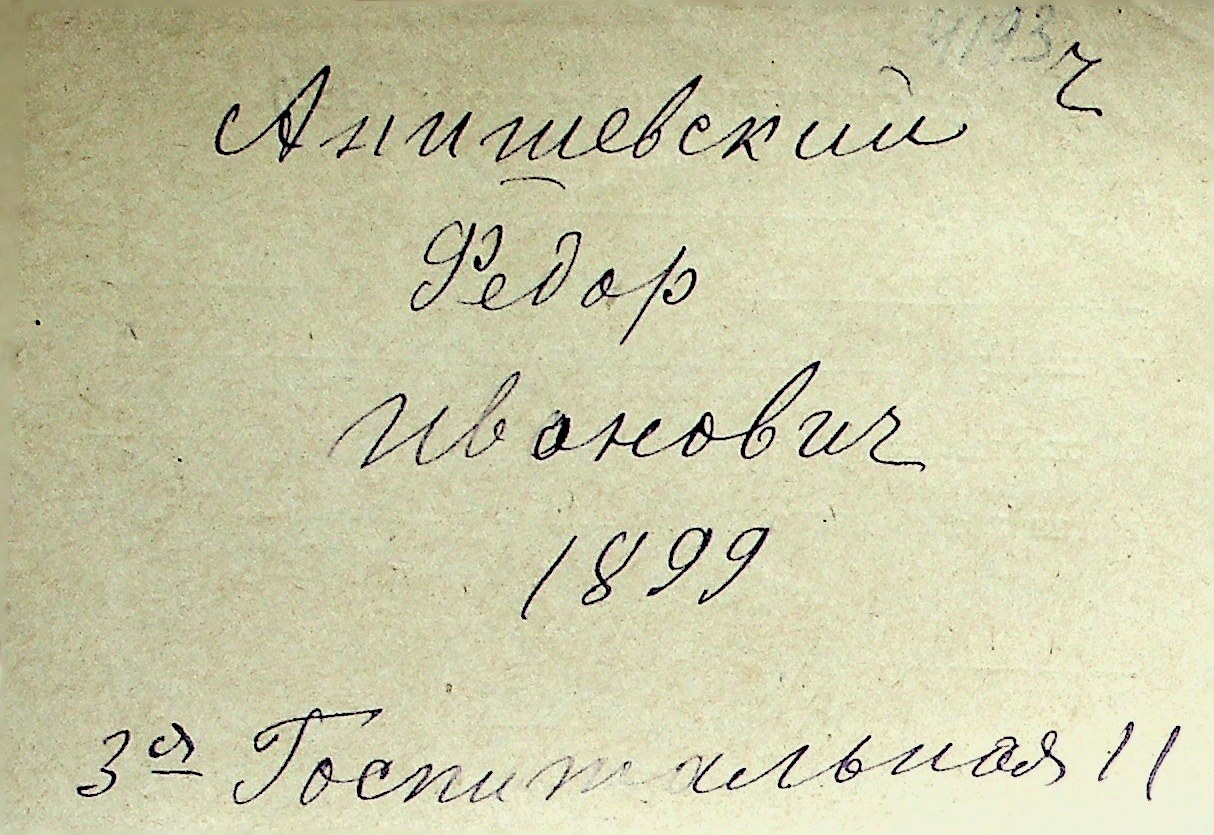 4193
ч
Анишевский
Федор
Иванович
1899
3я Госпитальная 11